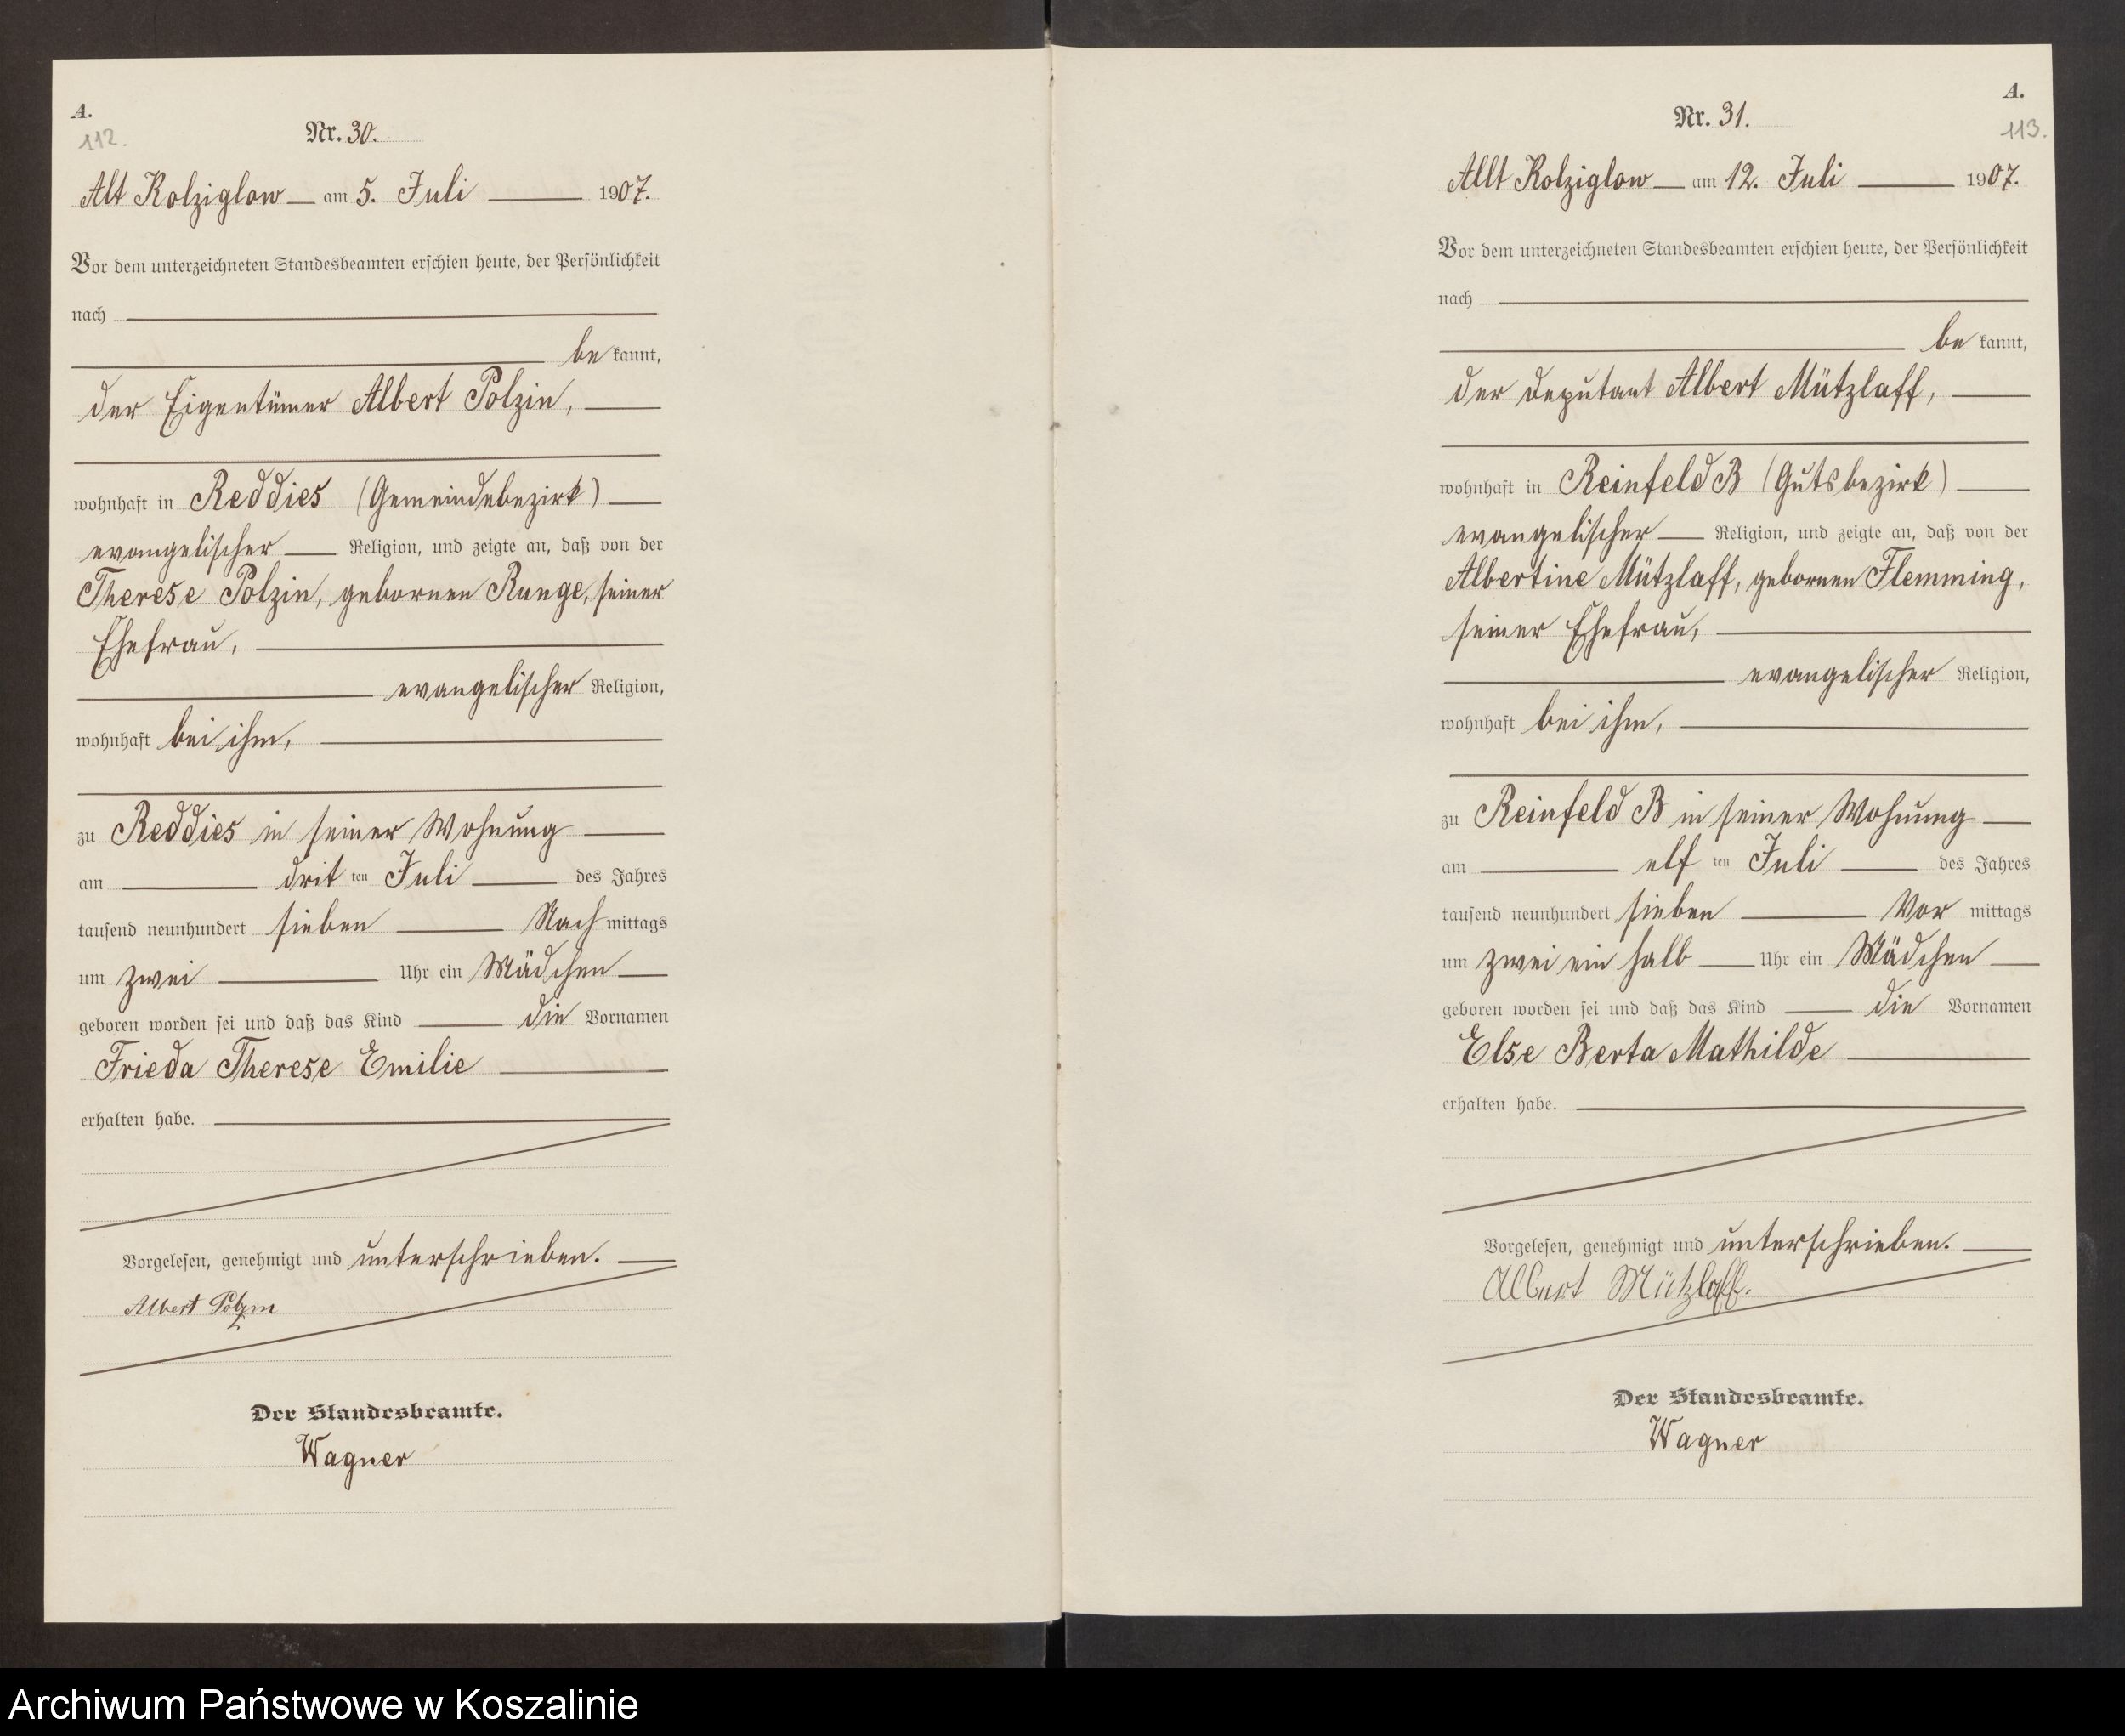 A.
112.
Nr. 30.
Alt Kolziglow am 5. Juli 1907.
Vor dem unterzeichneten Standesbeamten erschien heute, der Persönlichkeit
nach
be kannt,
der Eigentümer Albert Polzin,
wohnhaft in Reddies (Gemeindebezirk)
evangelischer Religion, und zeigte an, daß von der
Therese Polzin, gebornen Runge, seiner
Ehefrau,
evangelischer Religion,
wohnhaft bei ihm,
zu Reddies in seiner Wohnung
am drit ten Juli des Jahres
tausend neunhundert sieben Nach mittags
um zwei Uhr ein Mädchen
geboren worden sei und daß das Kind die Vornamen
Frieda Therese Emilie
erhalten habe.
Vorgelesen, genehmigt und unterschrieben.
Albert Polzin
Der Standesbeamte.
Wagner
A.
113.
Nr. 31.
Allt Kolziglow am 12. Juli 1907.
Vor dem unterzeichneten Standesbeamten erschien heute, der Persönlichkeit
nach
be kannt,
der Deputant Albert Mützlaff,
wohnhaft in Reinfeld B (Gutsbezirk)
evangelischer Religion, und zeigte an, daß von der
Albertine Mützlaff, gebornen Flemming,
seiner Ehefrau,
evangelischer Religion,
wohnhaft bei ihm,
zu Reinfeld B in seiner Wohnung
am elf ten Juli des Jahres
tausend neunhundert sieben Vor mittags
um zwei ein halb Uhr ein Mädchen
geboren worden sei und daß das Kind die Vornamen
Else Berta Mathilde
erhalten habe.
Vorgelesen, genehmigt und unterschrieben.
Albert Mützlaff.
Der Standesbeamte.
Wagner
Archiwum Państwowe w Koszalinie